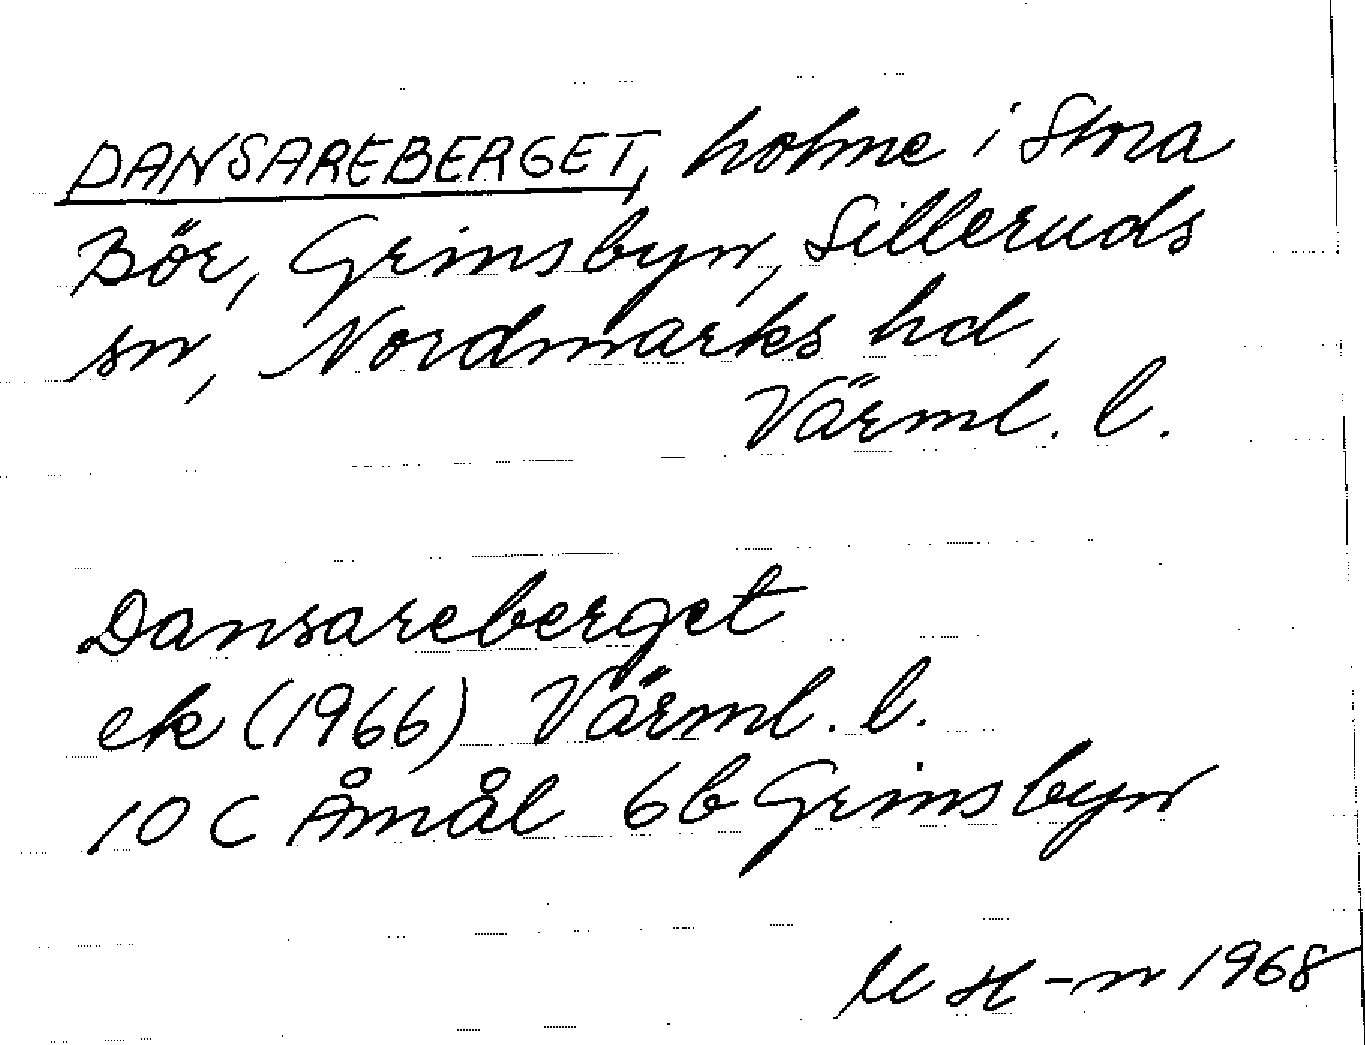 DANSAREBERGET, holme i Stora
Bör, Grinsbyn, Silleruds
sn, Nordmarks hd,
Värml. l.
Dansareberget
ek (1966) Värml. l.
10 C Åmål 6b Grinsbyn
H-n 1968